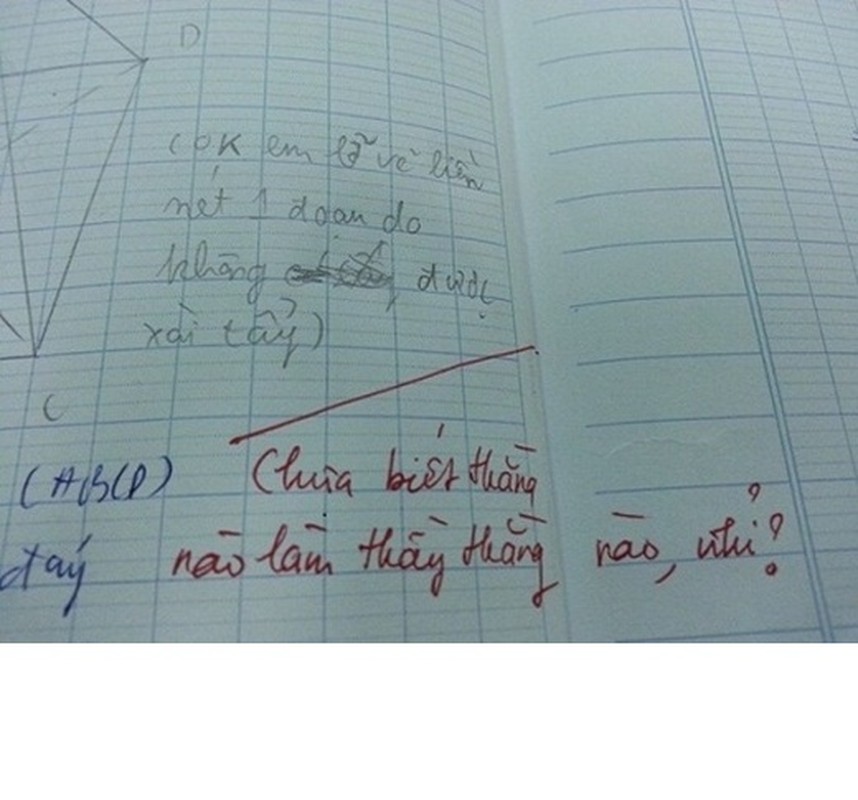 D
(OK em lỡ vẽ liền
nét 1 đoạn do
không được
xài tẩy)
C
(ABCD) Chưa biết thằng
đáy nào làm thầy thằng nào, nhỉ?